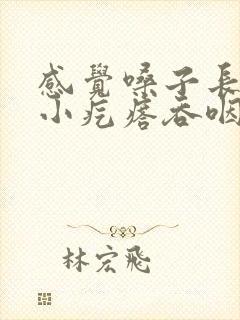 感覺嗓子長
小疙瘩吞咽
林宏飛